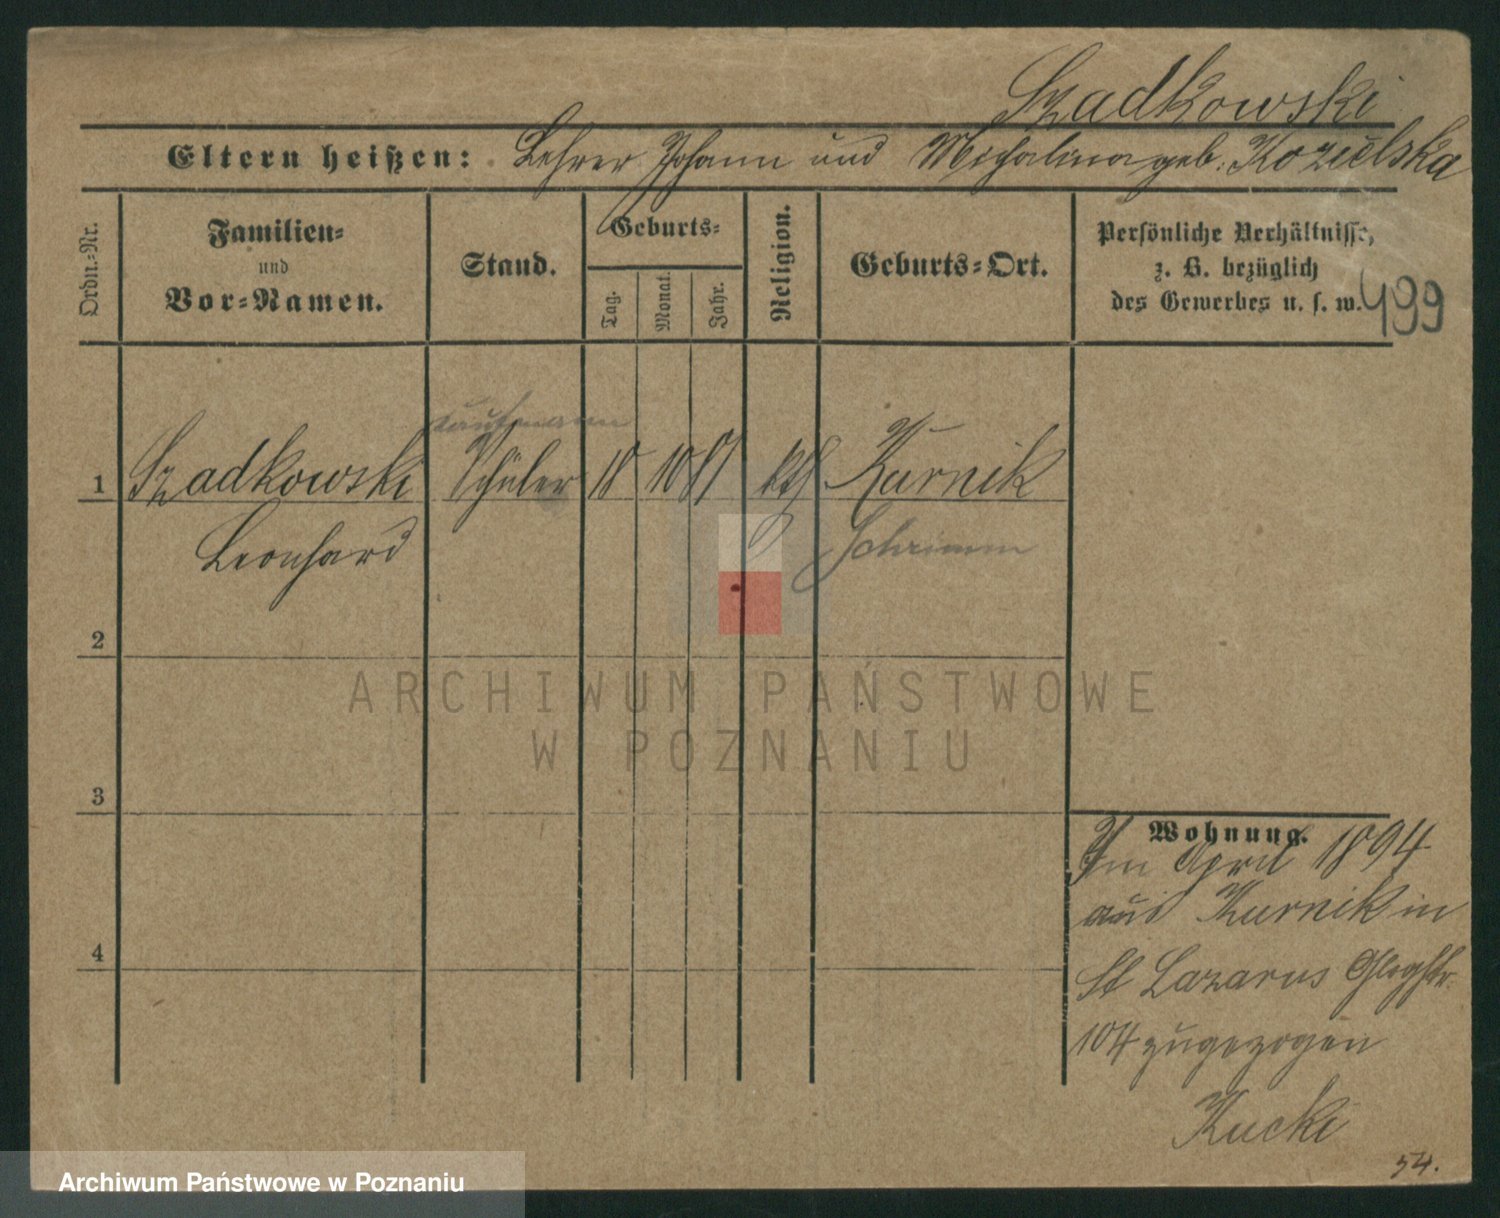 Szadkowski
Eltern heißen: Lehrer Johann und Michalina geb. Kozielska
Ordn.-Nr.
Familien-
und
Vor-Namen.
Stand.
Geburts-
Tag.
Monat.
Jahr.
Religion.
Geburts-Ort.
Persönliche Verhältnisse,
z. B. bezüglich
des Gewerbes u. s. w.
499
Kaufmann
1 Szadkowski Schüler 18 10 81 kth Kurnik
Leonhard Schrimm
2
3
4
ARCHIWUM PAŃSTWOWE
W POZNANIU
Wohnung.
Im April 1894
aus Kurnik in
St Lazarus Glogstr.
104 zugezogen
Kucki
54.
Archiwum Państwowe w Poznaniu